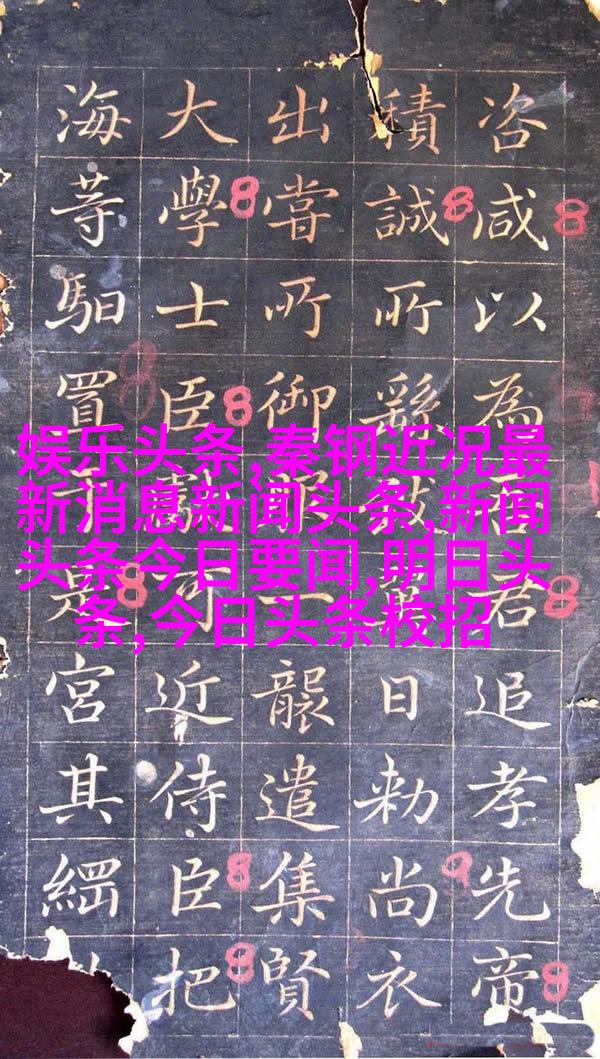 娱乐头条,秦钢近况最
新消息新闻头条,新闻
头条今日要闻,明日头
条,今日头条校招
咨咸以為君追孝先帝
積誠所繇日勅尚衣
出嘗所御服一襲遣集賢
大學士臣可近侍臣把
海䓁馹置于是宮其綱